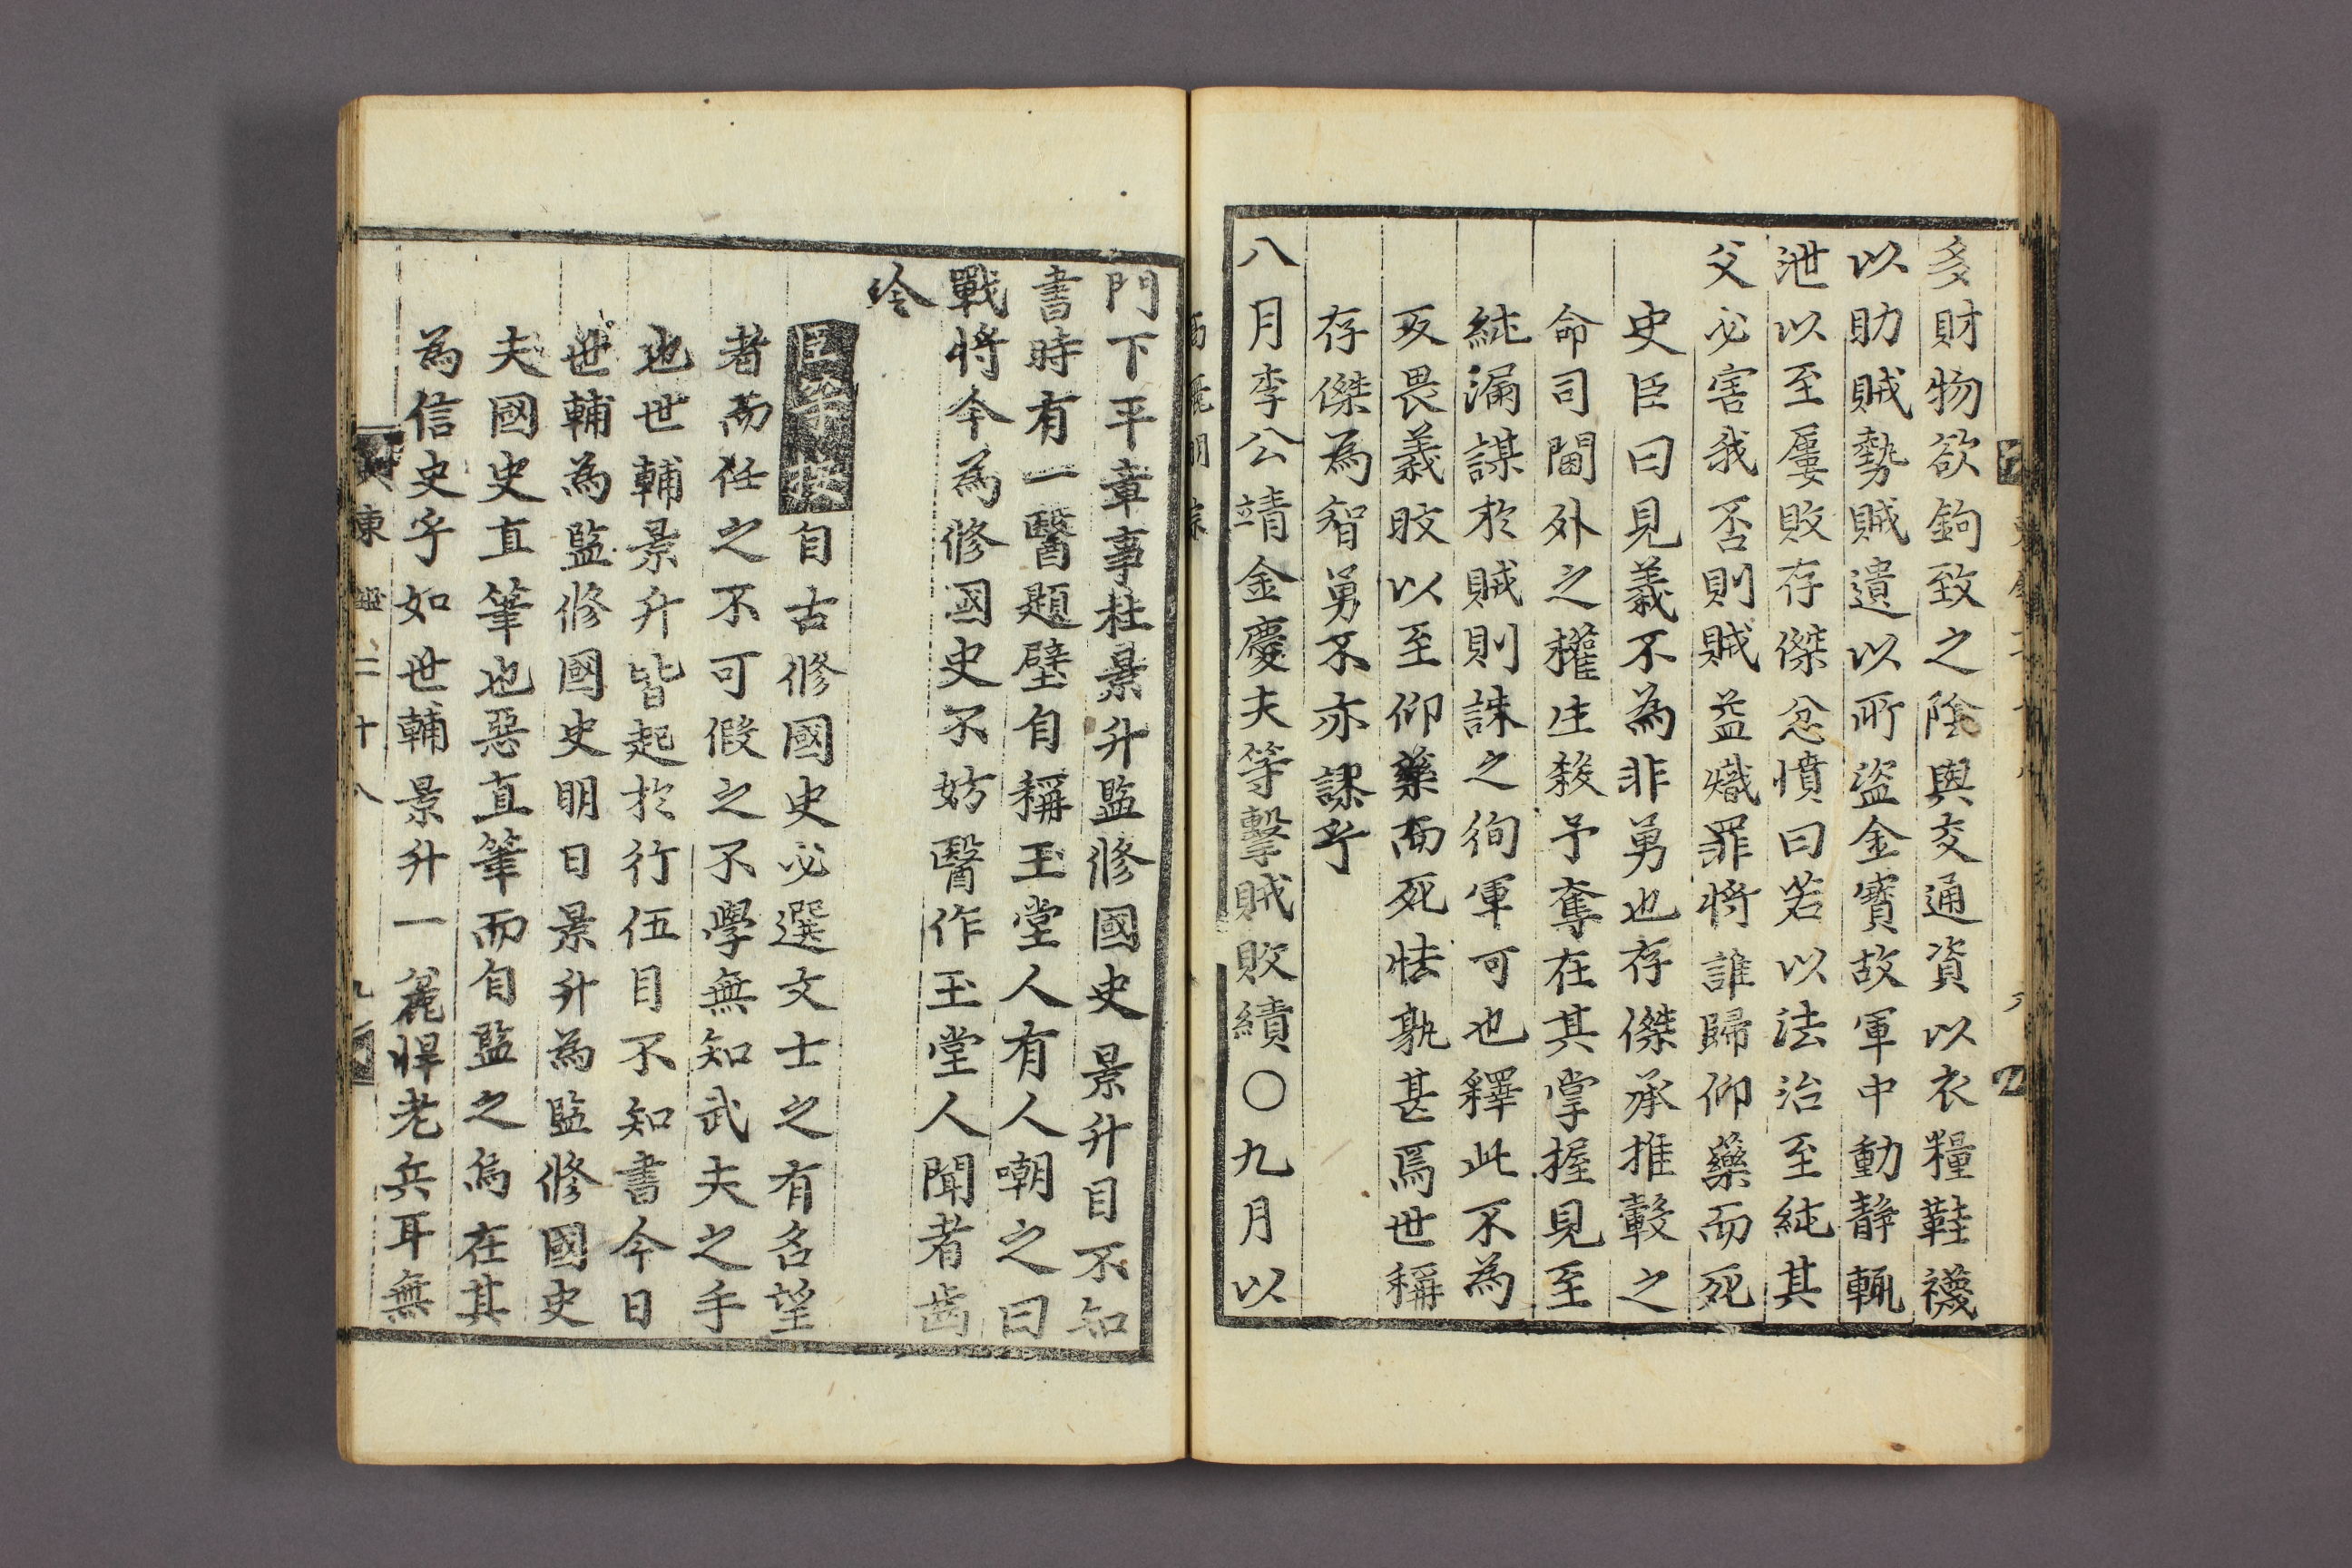 多財物欲鉤致之陰與交通資以衣糧鞋襪
以助賊勢賊遺以所盜金寶故軍中動静輒
泄以至屢敗存傑忿憤曰若以法治至純其
父必害我否則賊益熾罪將誰歸仰藥而死
史臣曰見義不為非勇也存傑承推轂之
命司閫外之權生殺予奪在其掌握見至
純漏謀於賊則誅之徇軍可也釋此不為
反畏義旼以至仰藥而死怯孰甚焉世稱
存傑為智勇不亦謬乎
八月李公靖金慶夫等擊賊敗績〇九月以
門下平章事杜景升監修國史景升目不知
書時有一醫題壁自稱玉堂人有人嘲之曰
戰將今為修國史不妨醫作玉堂人聞者齒
冷
臣等按自古修國史必選文士之有名望
者而任之不可假之不學無知武夫之手
也世輔景升皆起於行伍目不知書今日
世輔為監修國史明日景升為監修國史
夫國史直筆也惡直筆而自監之烏在其
為信史乎如世輔景升一麄悍老兵耳無
東鑑二十八